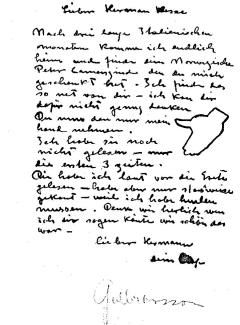 Lieber Herman Hesse
Nach drei lange Italienischen
monaten komme ich endlich
heim und finde ein Norwegische
Peter Camenzind den du mich
geschenkt hat. Ich finde das
so net von dir — ich kan dir
dafür nicht genug danken
Du muss den nur mein
hand nehmen.
Ich habe sie noch
nicht gelesen — nur
die ersten 3 zeilen.
Die habe ich laut vor die Leute
gelesen — habe aber nur
gekont — weil ich habe
mussen. Denke wie herlich wen
ich dir sagen könte wie schön das
war —
lieber Hermann
dein Olaf
Gulbransson